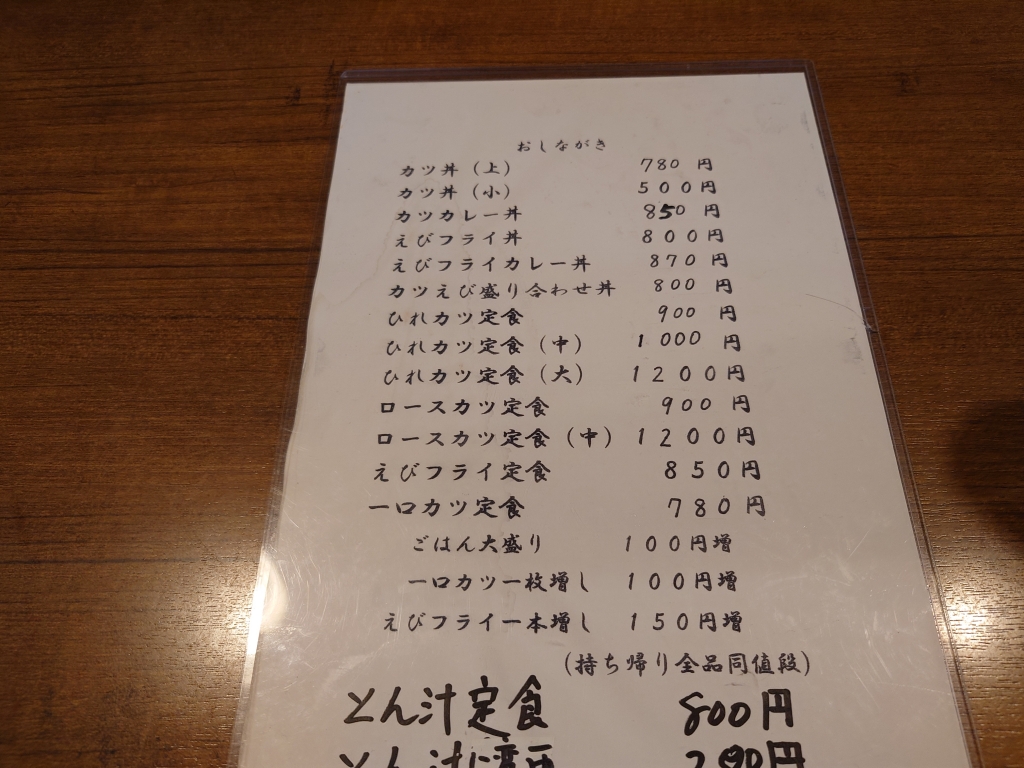 おしながき
カツ丼（上） 780 円
カツ丼（小） 500円
カツカレー丼 850 円
えびフライ丼 800円
えびフライカレー丼 870 円
カツえび盛り合わせ丼 800 円
ひれカツ定食 900 円
ひれカツ定食（中） 1000 円
ひれカツ定食（大） 1200円
ロースカツ定食 900 円
ロースカツ定食（中） 1200円
えびフライ定食 850円
一口カツ定食 780円
ごはん大盛り 100円増
一口カツ一枚増し 100円増
えびフライ一本増し 150円増
（持ち帰り全品同値段）
とん汁定食 800円
とん汁